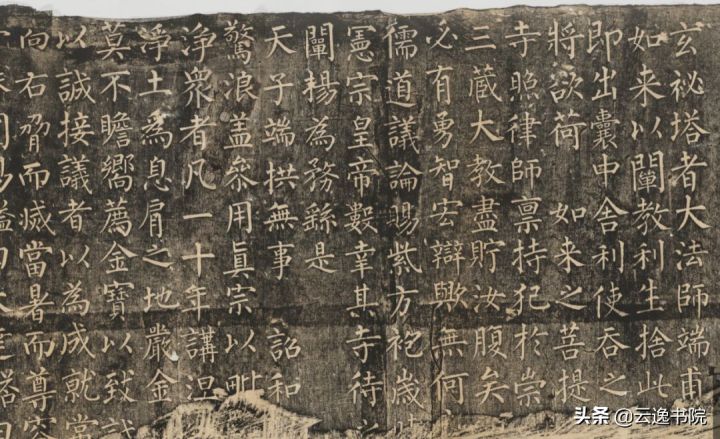 玄祕塔者大法師端甫
如来以闡教利生捨此
即出囊中舍利使吞之
將欲荷 如来之菩提
寺照律師禀持犯於崇
三蔵大教盡貯汝腹矣
必有勇智宏辯歟無何
儒道議論賜紫方袍歲
憲宗皇帝數幸其寺待
闡揚為務繇是
天子端拱無事 詔和
驚浪盖叅用真宗以毗
浄衆者凡一十年講涅
浄土為息肩之地嚴金
莫不瞻嚮薦金寶以致
以誠接議者以為成就常
向右脅而滅當暑而尊容
头条 @云逸书院